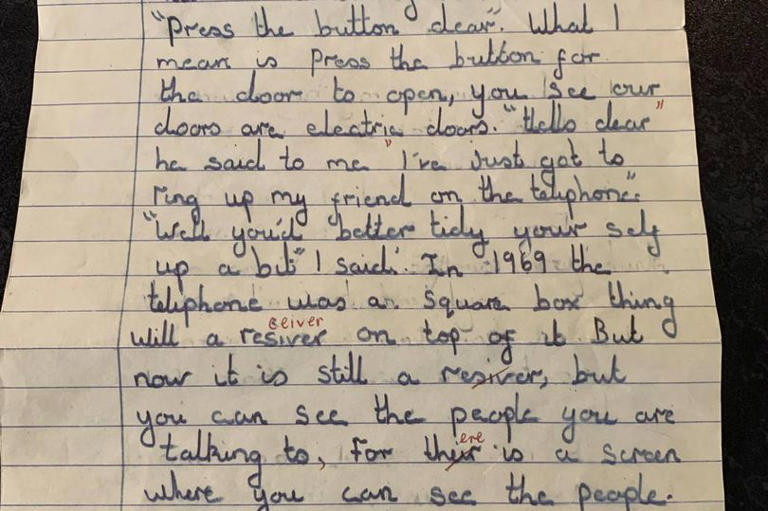 "Press the button dear". What I
mean is press the button for
the door to open, you see our
doors are electric doors. "Hello dear"
he said to me "I've just got to
ring up my friend on the telephone".
"Well you'd better tidy your self
up a bit" I said. In 1969 the
telephone was a square box thing
ceiver
will a resiver on top of it But
now it is still a resiver, but
you can see the people you are
ere
talking to, for thier is a screen
where you can see the people.